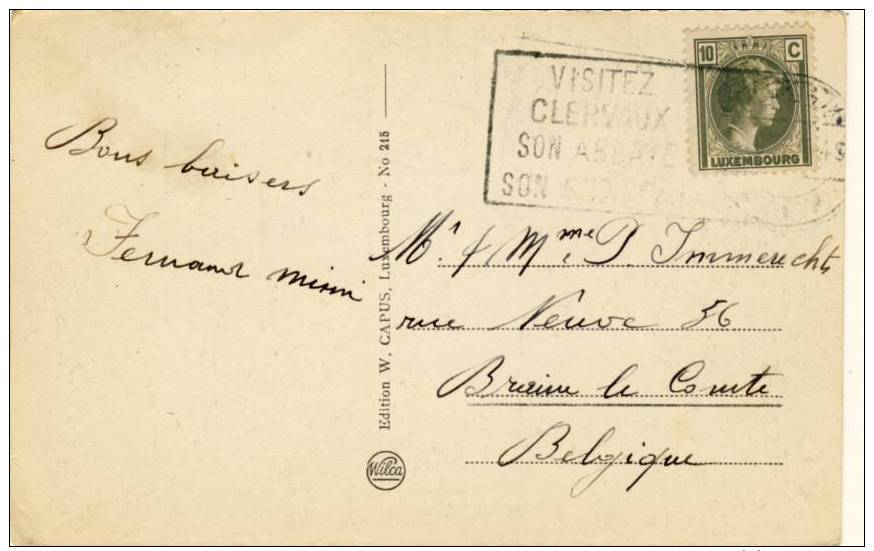 Bons baisers
Fernand
Edition W. CAPUS, Luxembourg - No 215
Wilca
VISITEZ
CLERVAUX
SON ABBAYE
SON
10 C
LUXEMBOURG
Mr & Mme P. Immerechts
rue Neuve 56
Braine le Comte
Belgique